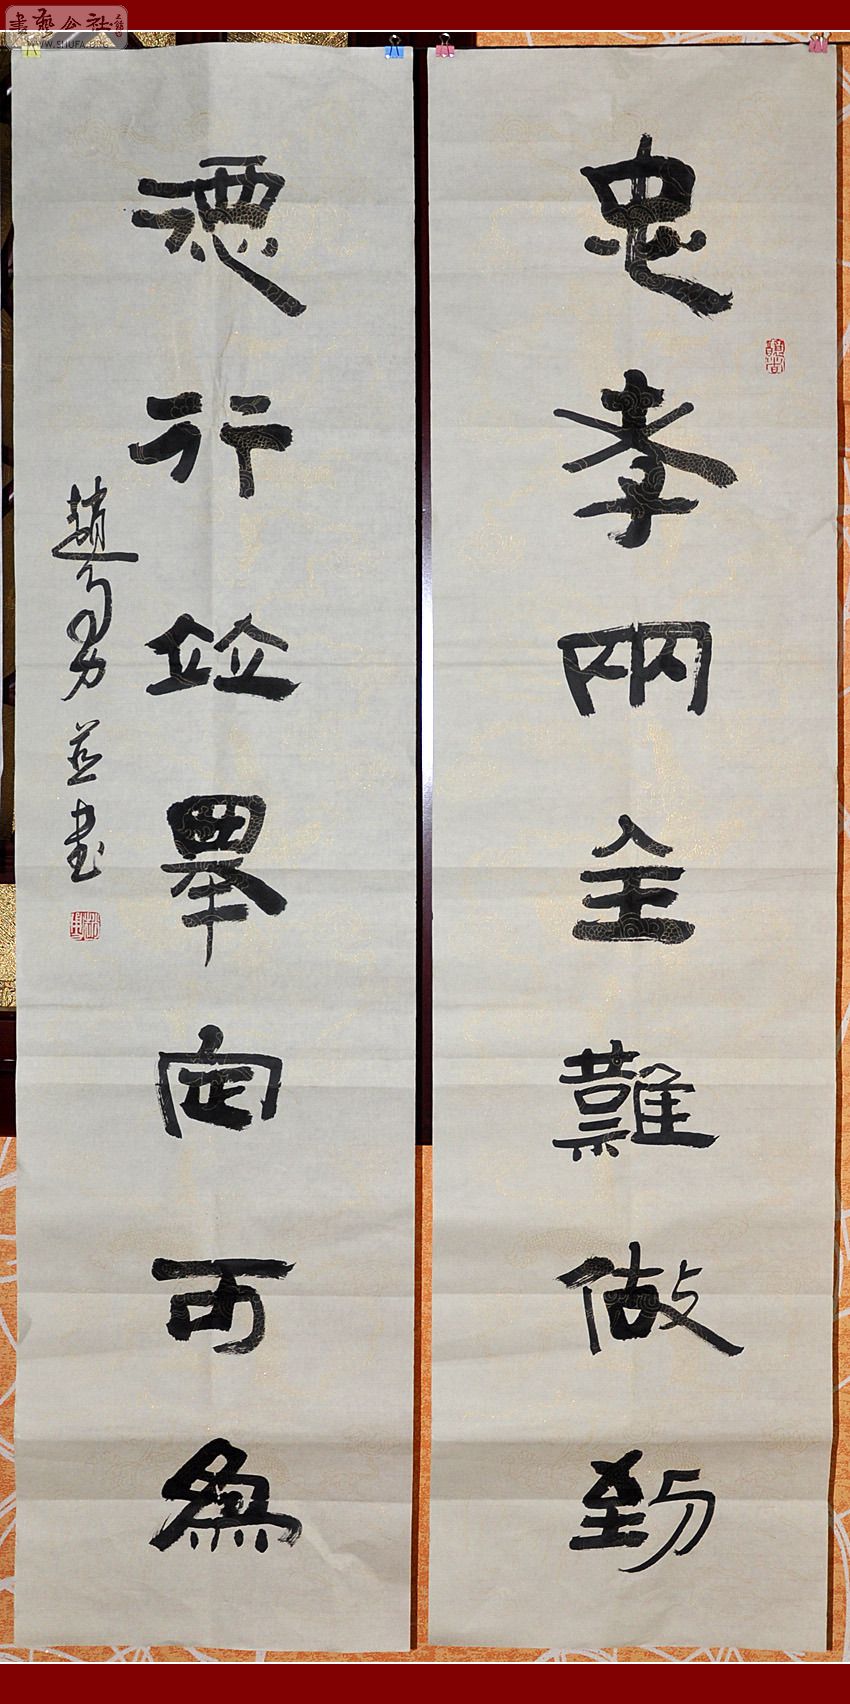 忠孝兩全難做到
德行竝舉定可為
趙勇並書
書藝公社
WWW.SHUFA.ORG